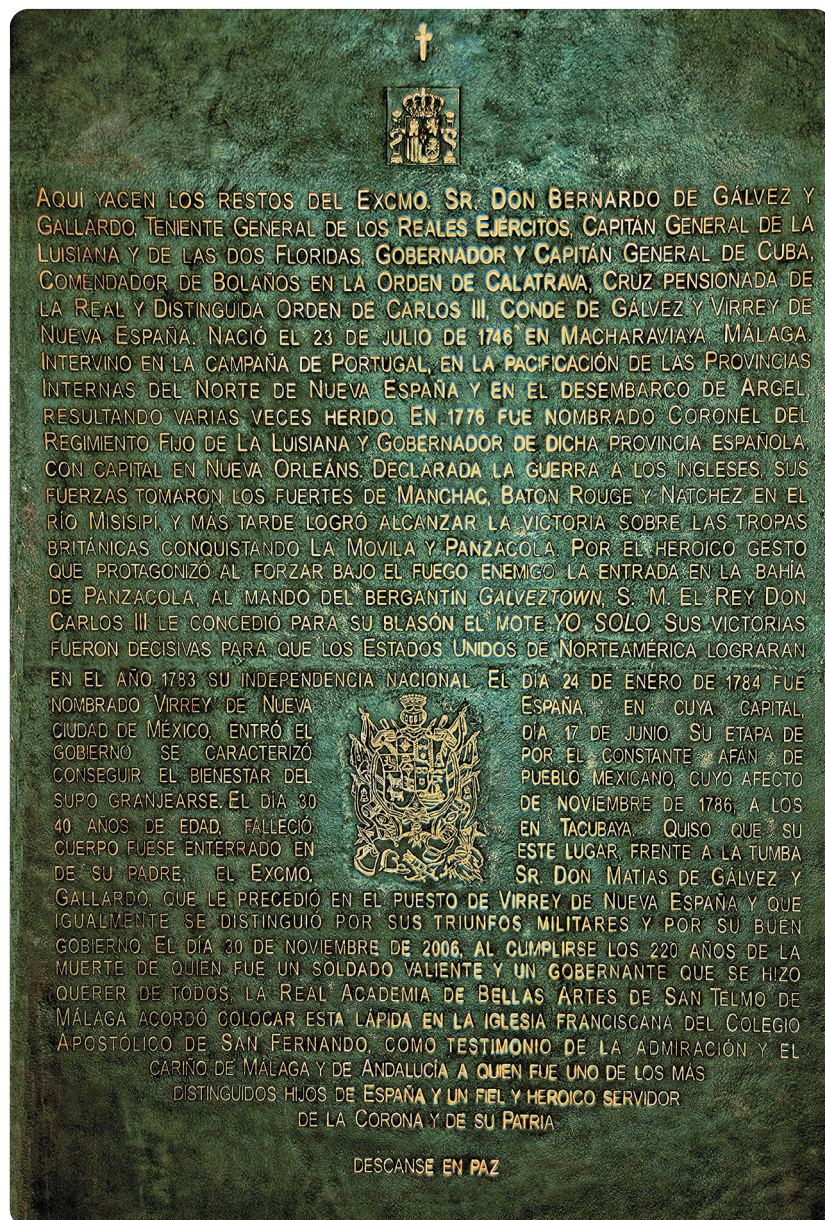 AQUÍ YACEN LOS RESTOS DEL EXCMO. SR. DON BERNARDO DE GÁLVEZ Y
GALLARDO, TENIENTE GENERAL DE LOS REALES EJÉRCITOS, CAPITÁN GENERAL DE LA
LUISIANA Y DE LAS DOS FLORIDAS, GOBERNADOR Y CAPITÁN GENERAL DE CUBA,
COMENDADOR DE BOLAÑOS EN LA ORDEN DE CALATRAVA, CRUZ PENSIONADA DE
LA REAL Y DISTINGUIDA ORDEN DE CARLOS III, CONDE DE GÁLVEZ Y VIRREY DE
NUEVA ESPAÑA. NACIÓ EL 23 DE JULIO DE 1746 EN MACHARAVIAYA, MÁLAGA.
INTERVINO EN LA CAMPAÑA DE PORTUGAL, EN LA PACIFICACIÓN DE LAS PROVINCIAS
INTERNAS DEL NORTE DE NUEVA ESPAÑA Y EN EL DESEMBARCO DE ARGEL,
RESULTANDO VARIAS VECES HERIDO. EN 1776 FUE NOMBRADO CORONEL DEL
REGIMIENTO FIJO DE LA LUISIANA Y GOBERNADOR DE DICHA PROVINCIA ESPAÑOLA,
CON CAPITAL EN NUEVA ORLEÁNS. DECLARADA LA GUERRA A LOS INGLESES, SUS
FUERZAS TOMARON LOS FUERTES DE MANCHAC, BATON ROUGE Y NATCHEZ EN EL
RÍO MISISIPÍ, Y MÁS TARDE LOGRÓ ALCANZAR LA VICTORIA SOBRE LAS TROPAS
BRITÁNICAS CONQUISTANDO LA MOVILA Y PANZACOLA. POR EL HEROICO GESTO
QUE PROTAGONIZÓ AL FORZAR BAJO EL FUEGO ENEMIGO LA ENTRADA EN LA BAHÍA
DE PANZACOLA, AL MANDO DEL BERGANTÍN GALVEZTOWN, S. M. EL REY DON
CARLOS III LE CONCEDIÓ PARA SU BLASÓN EL MOTE YO SOLO. SUS VICTORIAS
FUERON DECISIVAS PARA QUE LOS ESTADOS UNIDOS DE NORTEAMÉRICA LOGRARAN
EN EL AÑO 1783 SU INDEPENDENCIA NACIONAL. EL DÍA 24 DE ENERO DE 1784 FUE
NOMBRADO VIRREY DE NUEVA ESPAÑA, EN CUYA CAPITAL,
CIUDAD DE MÉXICO, ENTRÓ EL DÍA 17 DE JUNIO. SU ETAPA DE
GOBIERNO SE CARACTERIZÓ POR EL CONSTANTE AFÁN DE
CONSEGUIR EL BIENESTAR DEL PUEBLO MEXICANO, CUYO AFECTO
SUPO GRANJEARSE. EL DÍA 30 DE NOVIEMBRE DE 1786, A LOS
40 AÑOS DE EDAD, FALLECIÓ EN TACUBAYA. QUISO QUE SU
CUERPO FUESE ENTERRADO EN ESTE LUGAR, FRENTE A LA TUMBA
DE SU PADRE, EL EXCMO. SR. DON MATÍAS DE GÁLVEZ Y
GALLARDO, QUE LE PRECEDIÓ EN EL PUESTO DE VIRREY DE NUEVA ESPAÑA Y QUE
IGUALMENTE SE DISTINGUIÓ POR SUS TRIUNFOS MILITARES Y POR SU BUEN
GOBIERNO. EL DÍA 30 DE NOVIEMBRE DE 2006, AL CUMPLIRSE LOS 220 AÑOS DE LA
MUERTE DE QUIEN FUE UN SOLDADO VALIENTE Y UN GOBERNANTE QUE SE HIZO
QUERER DE TODOS, LA REAL ACADEMIA DE BELLAS ARTES DE SAN TELMO DE
MÁLAGA ACORDÓ COLOCAR ESTA LÁPIDA EN LA IGLESIA FRANCISCANA DEL COLEGIO
APOSTÓLICO DE SAN FERNANDO, COMO TESTIMONIO DE LA ADMIRACIÓN Y EL
CARIÑO DE MÁLAGA Y DE ANDALUCÍA A QUIEN FUE UNO DE LOS MÁS
DISTINGUIDOS HIJOS DE ESPAÑA Y UN FIEL Y HEROICO SERVIDOR
DE LA CORONA Y DE SU PATRIA
DESCANSE EN PAZ